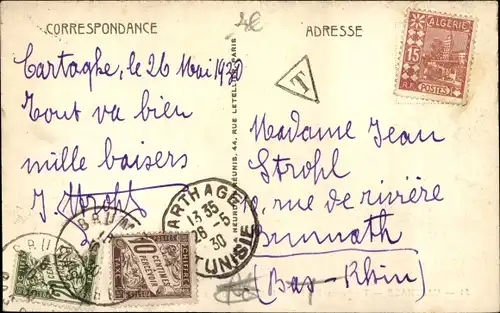 CORRESPONDANCE
ADRESSE
Cartaghe, le 26 Mai 1930
Tout va bien
mille baisers
J. Strohl
Madame Jean
Strohl
10, rue de rivière
Brumath
(Bas-Rhin)
T
ALGERIE
15
POSTES
CARTHAGE
13 35
26 -5
30
TUNISIE
10
CENTIMES
À PERCEVOIR
CHIFFRE
TAXE
BRUM